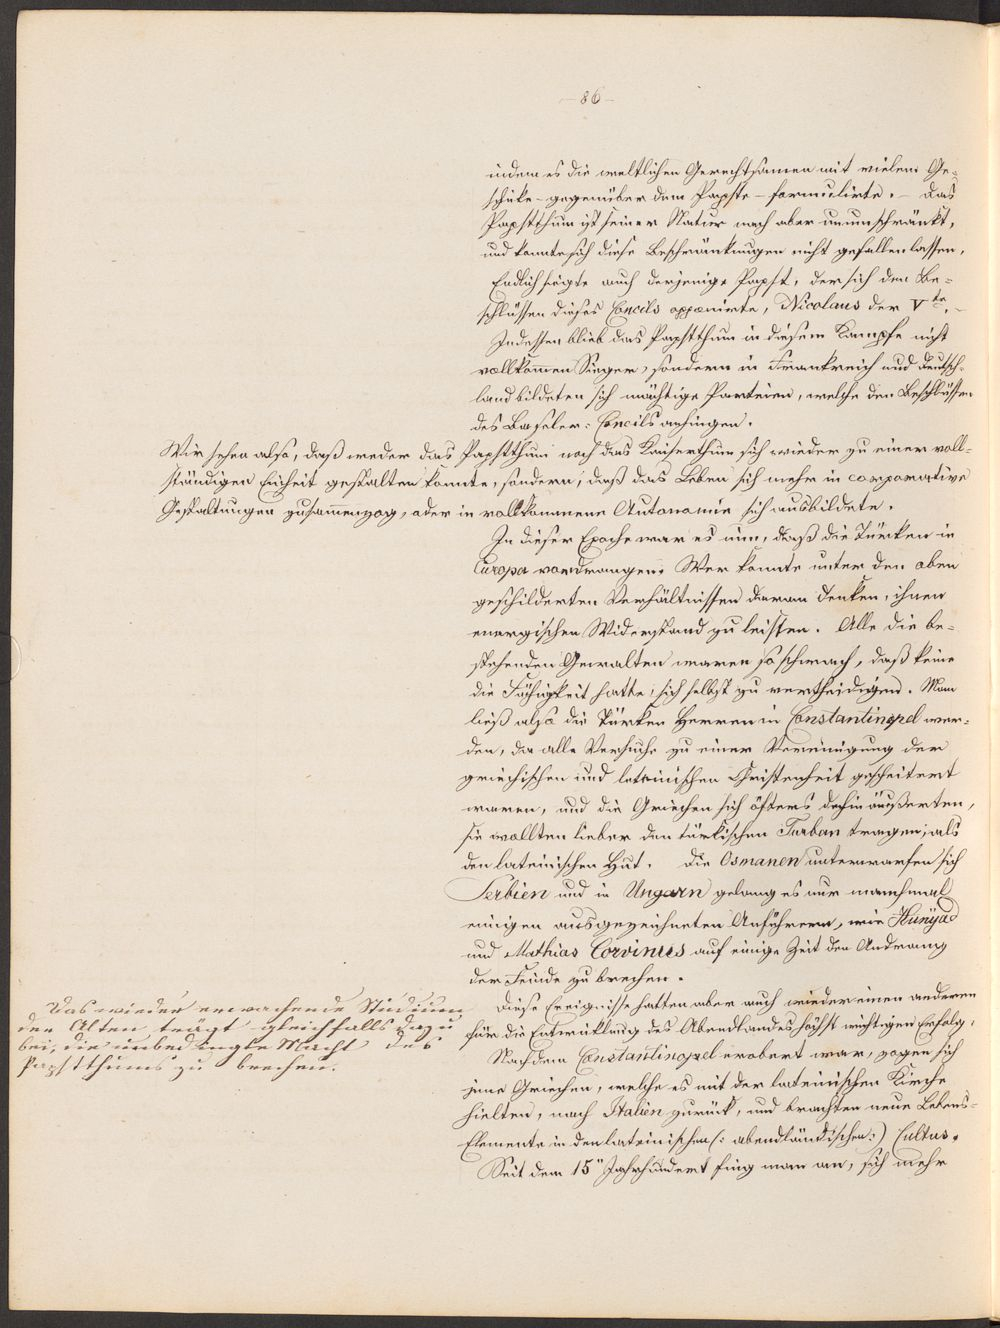 – 86 –
indem es die weltlichen Gerechtsamen mit vielem Ge-
schicke – gegenüber dem Papste – formulirte. – Das
Papstthum ist seiner Natur nach aber unumschränkt,
und konnte sich diese Beschränkungen nicht gefallen lassen,
Endlich siegte auch derjenige Papst, der sich den Be-
schlüssen dieses Concils opponirte, Nicolaus der Vte. –
Indessen blieb das Papstthum in diesem Kampfe nicht
vollkommen Sieger, sondern in Frankreich und Deutsch-
land bildeten sich mächtige Parteien, welche den Beschlüssen
des Baseler: Concils anhingen.
Wir sehen also, daß weder das Papstthum noch das Kaiserthum sich wieder zu einer voll-
ständigen Einheit gestalten konnte, sondern, daß das Leben sich mehr in corporative
Gestaltungen zusammenzog, oder in vollkommene Autonomie sich ausbildete.
In dieser Epoche war es nun, daß die Türken in
Europa vordrangen. Wer konnte unter den oben
geschilderten Verhältnissen daran denken, ihnen
energischen Widerstand zu leisten. Alle die be-
stehenden Gewalten waren so schwach, daß keine
die Fähigkeit hatte, sich selbst zu vertheidigen. Man
ließ also die Türken Herren in Constantinopel wer-
den, da alle Versuche zu einer Vereinigung der
griechischen und lateinischen Christenheit gescheitert
waren, und die Griechen sich öfters dahin äußerten,
sie wollten lieber den türkischen Turban tragen, als
den lateinischen Hut. Die Osmanen unterwarfen sich
Serbien und in Ungarn gelang es nur manchmal
einigen ausgezeichneten Anführern, wie Hunÿad
und Mathias Corvinus auf einige Zeit den Andrang
der Feinde zu brechen.
Diese Ereignisse hatten aber auch wieder einen anderen
für die Entwicklung des Abendlandes höchst wichtigen Erfolg,
Das wieder erwachende Studium
der Alten trägt gleichfalls dazu
bei, die unbedingte Macht des
Papstthums zu brechen.
Nachdem Constantinopel erobert war, zogen sich
jene Griechen, welche es mit der lateinischen Kirche
hielten, nach Italien zurück, und brachten neue Lebens-
Elemente in den lateinischen (: abendländischen :) Cultus.
Seit dem 15" Jahrhundert fing man an, sich mehr